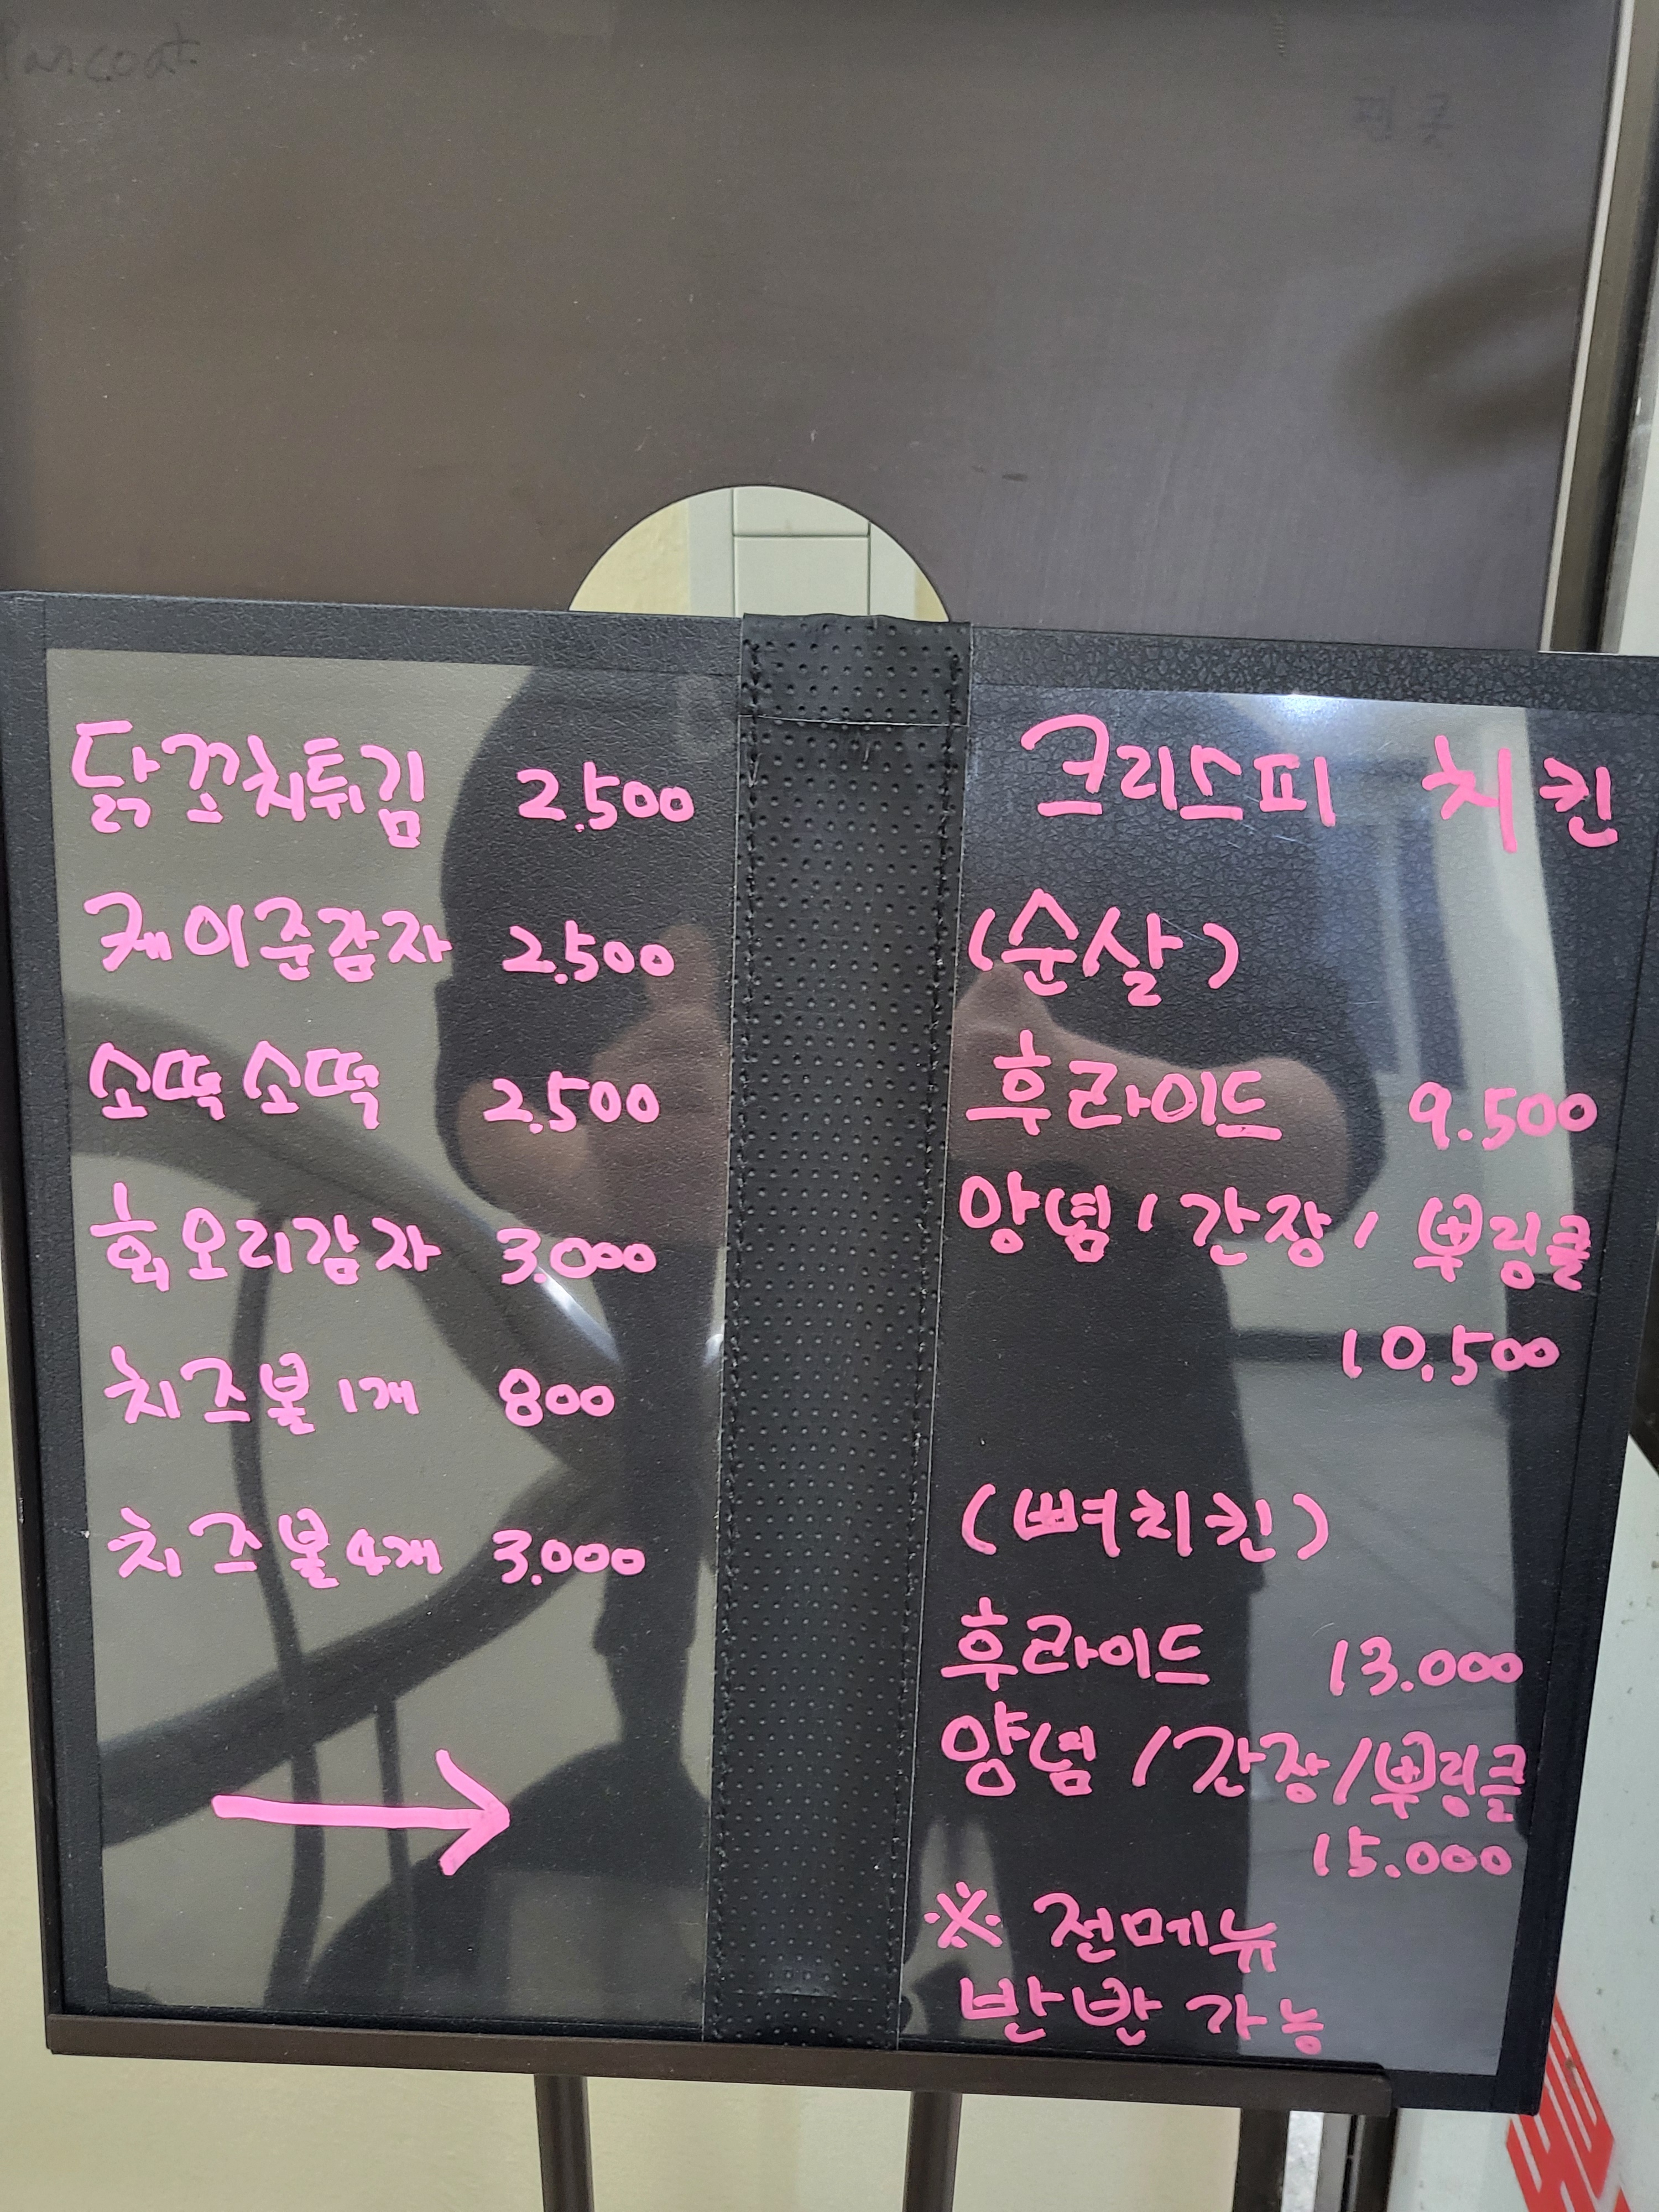 닭꼬치튀김 2.500
케이준감자 2.500
소떡소떡 2.500
회오리감자 3.000
치즈볼 1개 800
치즈볼 4개 3.000
크리스피 치킨
(순살)
후라이드 9.500
양념/간장/뿌링클
10.500
(뼈치킨)
후라이드 13.000
양념/간장/뿌링클
15.000
※ 전메뉴
반반 가능